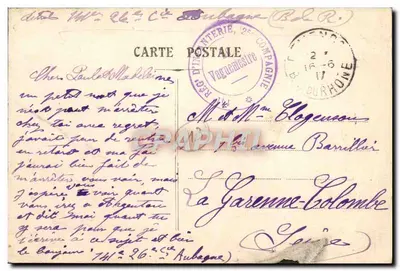 141e 26e Cie Aubagne (B. d. R.)
CARTE POSTALE
RÉGt D'INFANTERIE, 26e COMPAGNIE
Vaguemestre
16-6
17
DU RHONE
Cher Paul et Madeleine
un petit mot que je
n'ai pout m'arrêter
chez toi avec regret
j'avait pas de
en retard et ma
j'aurai bien fait de
m'arrêter mais
j'espère vous voir quant
vous irez a Argentan
et dit moi quant tu
y sera pour que je
t'écrive a ce sujet et bien
le bonjour 141e 26e Cie
Aubagne
M et Mme Clogenson
avenue Barrillier
La Garenne-Colombe
Seine